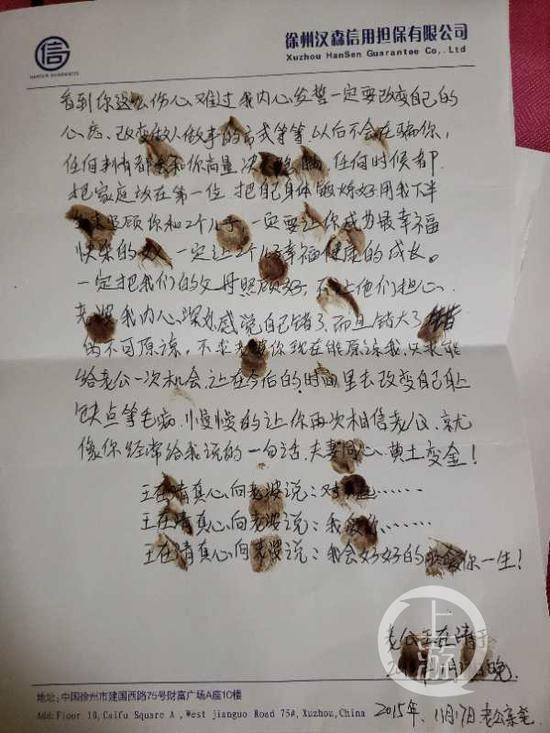 信
HANSEN GUARANTEE
徐州汉森信用担保有限公司
Xuzhou HanSen Guarantee Co,.Ltd
看到你这么伤心难过我内心发誓一定要改变自己的
心态、改变做人做事的方式等等,以后不会在骗你,
任何事情都会和你商量 任何时候都
把家庭放在第一位 把自己身体锻炼好用我下半
照顾你和2个儿子 一定要让你成为最幸福
快乐的女人 一定让2个儿子幸福健康的成长。
一定把我们的父母照顾好, 不让他们担心.
老婆 我内心深处感觉自己错了,而且错大了
的不可原谅, 不求老婆你现在能原谅我,只求能
给老公一次机会.让在今后的时间里去改变自己身上
缺点等毛病.慢慢的让你再次相信老公、就
像你经常给我说的一句话.夫妻同心、黄土变金!
王在清真心向老婆说:对不起……
王在清真心向老婆说:我爱你……
王在清真心向老婆说:我会好好的 你一生!
老公王在清于
晚
上游
地址:中国徐州市建国西路75号财富广场A座10楼
Add:Floor 10,Caifu Square A ,West jianguo Road 75#,Xuzhou,China
2015年、11月17日老公亲笔